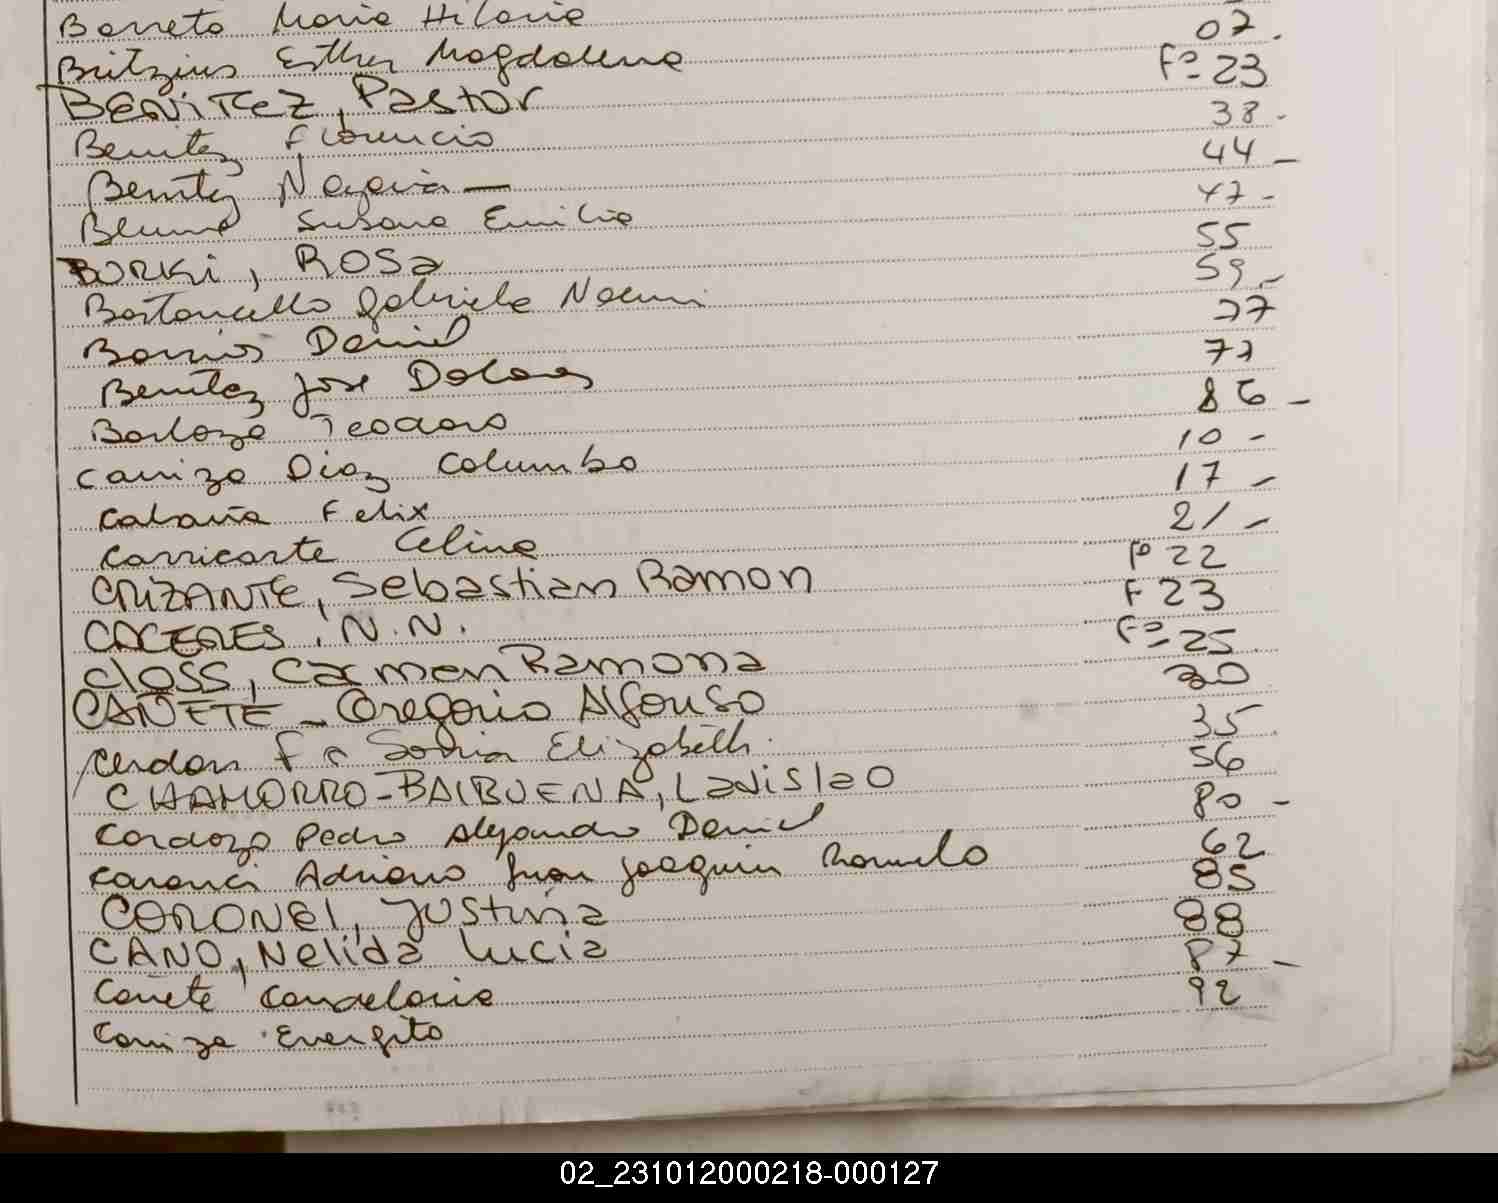 Barreto Maria Hilaria
Britzius Esther Magdalena 07.
BENITEZ, Pastor Fº 23
Benitez Florencio 38 -
Benitez 44 -
Blume Susana Emilia 47 -
BORKi, ROSa 55
Bortoncello Gabriela Noemi 59 -
Barrios Daniel 77
Benitez Jose Dolores 77
Barboza Teodoro 86 -
Caniza Diaz Columba 10 -
Cabaña Felix 17 -
Carricarte Celina 21 -
CRIZANTE, Sebastian Ramon Fº 22
CACERES, N.N. F 23
CLOSS, Carmen Ramona Fº 25
CAÑETE - Gregorio Alfonso 30
Cerdan Sonia Elizabeth. 35
CHAMORRO-BALBUENA, Ladislao 56
Cardozo Pedro Alejandro Daniel 80 -
Caranci Adriano Juan Joaquin Romulo 62
CORONEL, Justina 85
CANO, Nelida Lucia 88
Cañete Candelaria 87 -
Caniza Evergito 92
02_231012000218-000127